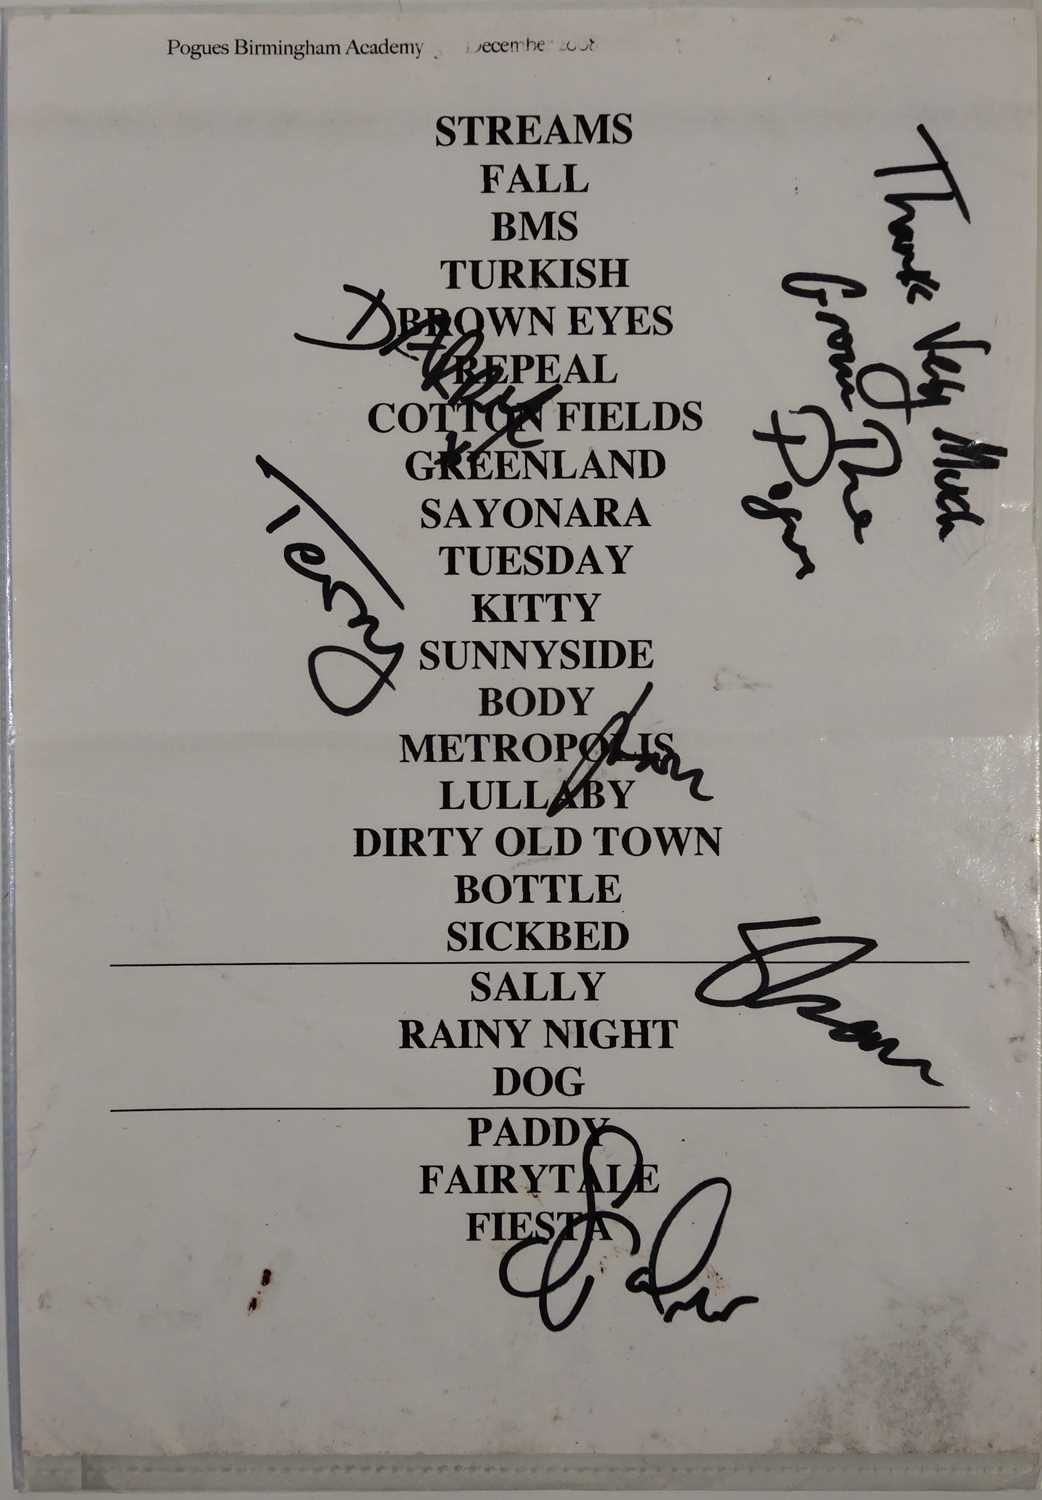 Pogues Birmingham Academy December 2008
STREAMS
FALL
BMS
TURKISH
BROWN EYES
REPEAL
COTTON FIELDS
GREENLAND
SAYONARA
TUESDAY
KITTY
SUNNYSIDE
BODY
METROPOLIS
LULLABY
DIRTY OLD TOWN
BOTTLE
SICKBED
SALLY
RAINY NIGHT
DOG
PADDY
FAIRYTALE
FIESTA
Thank Very Much
From The
Pogues
Terry